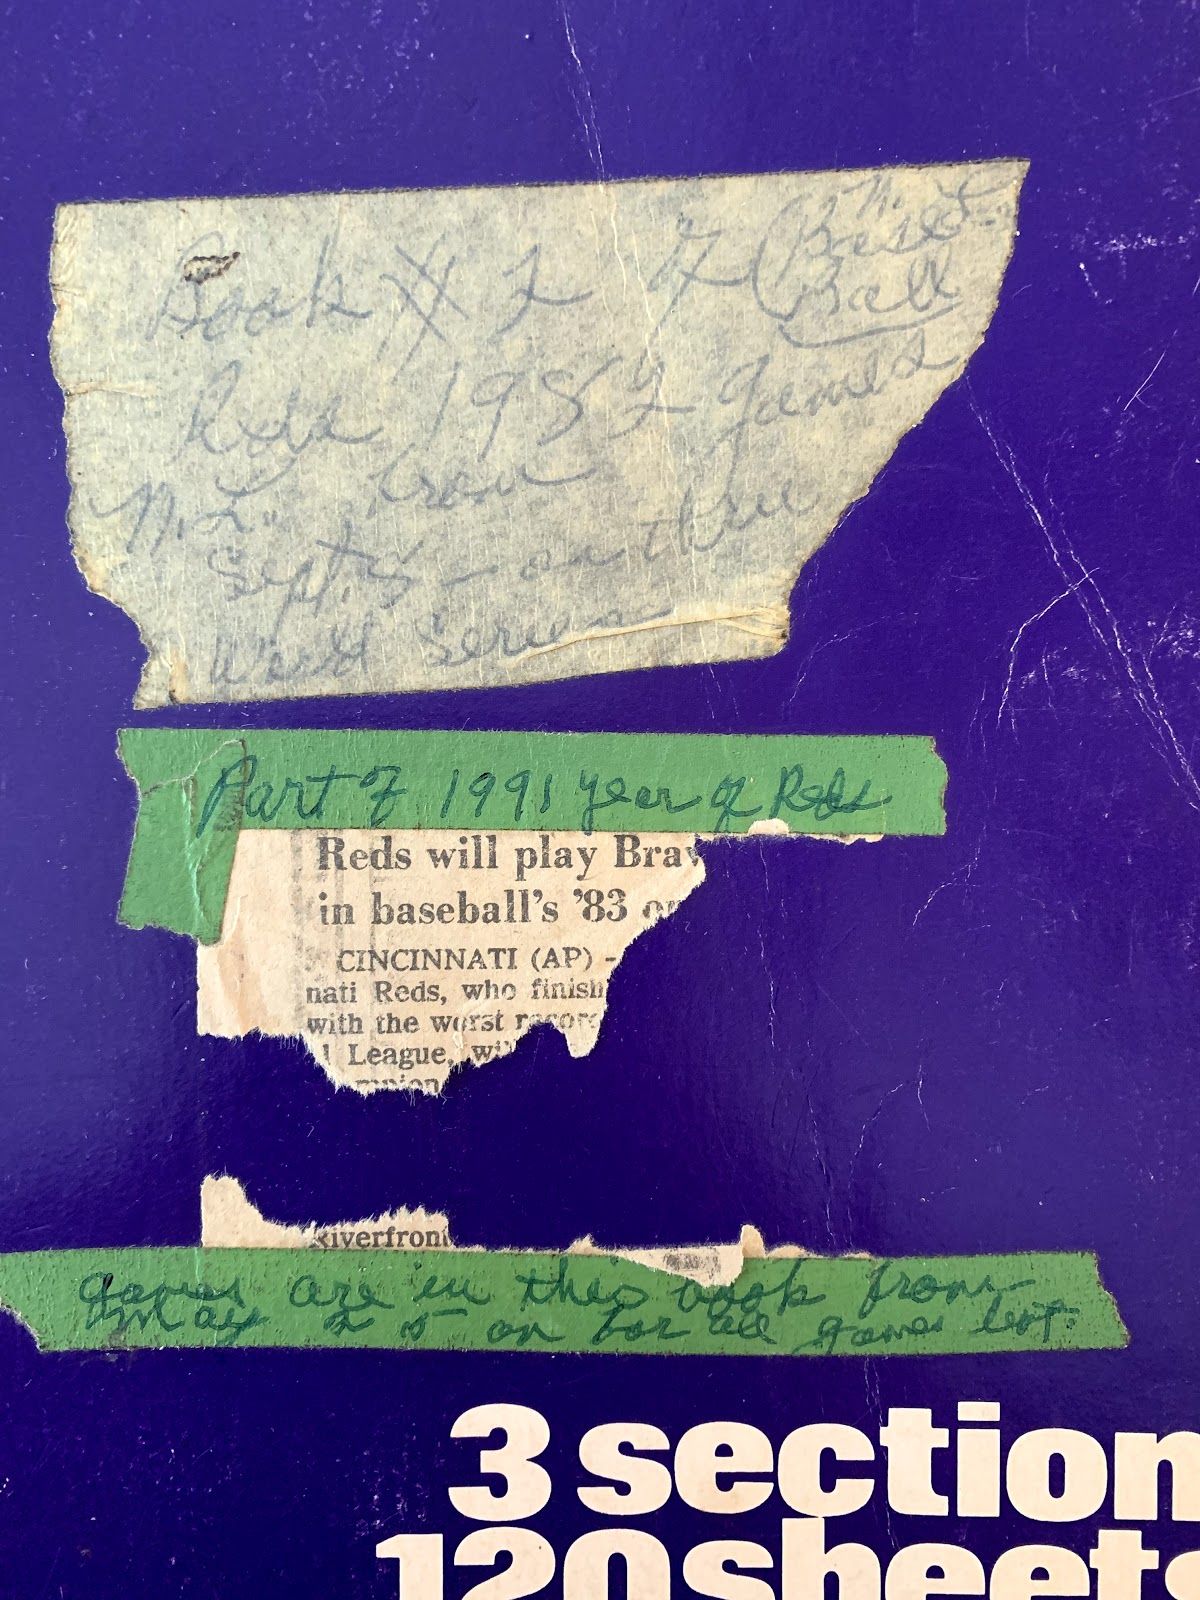 Book # 2 of (Base
Ball
Reds 1982 games
N.L. from
Sept. 5 - on thru
World Series
Part of 1991 year of Reds
Reds will play Brav
in baseball's '83 o
CINCINNATI (AP) -
nati Reds, who finish
with the worst recor
l League, wil
mpion
Riverfront
games are in this book from
May 25 on for all games left.
3 section
120 sheets